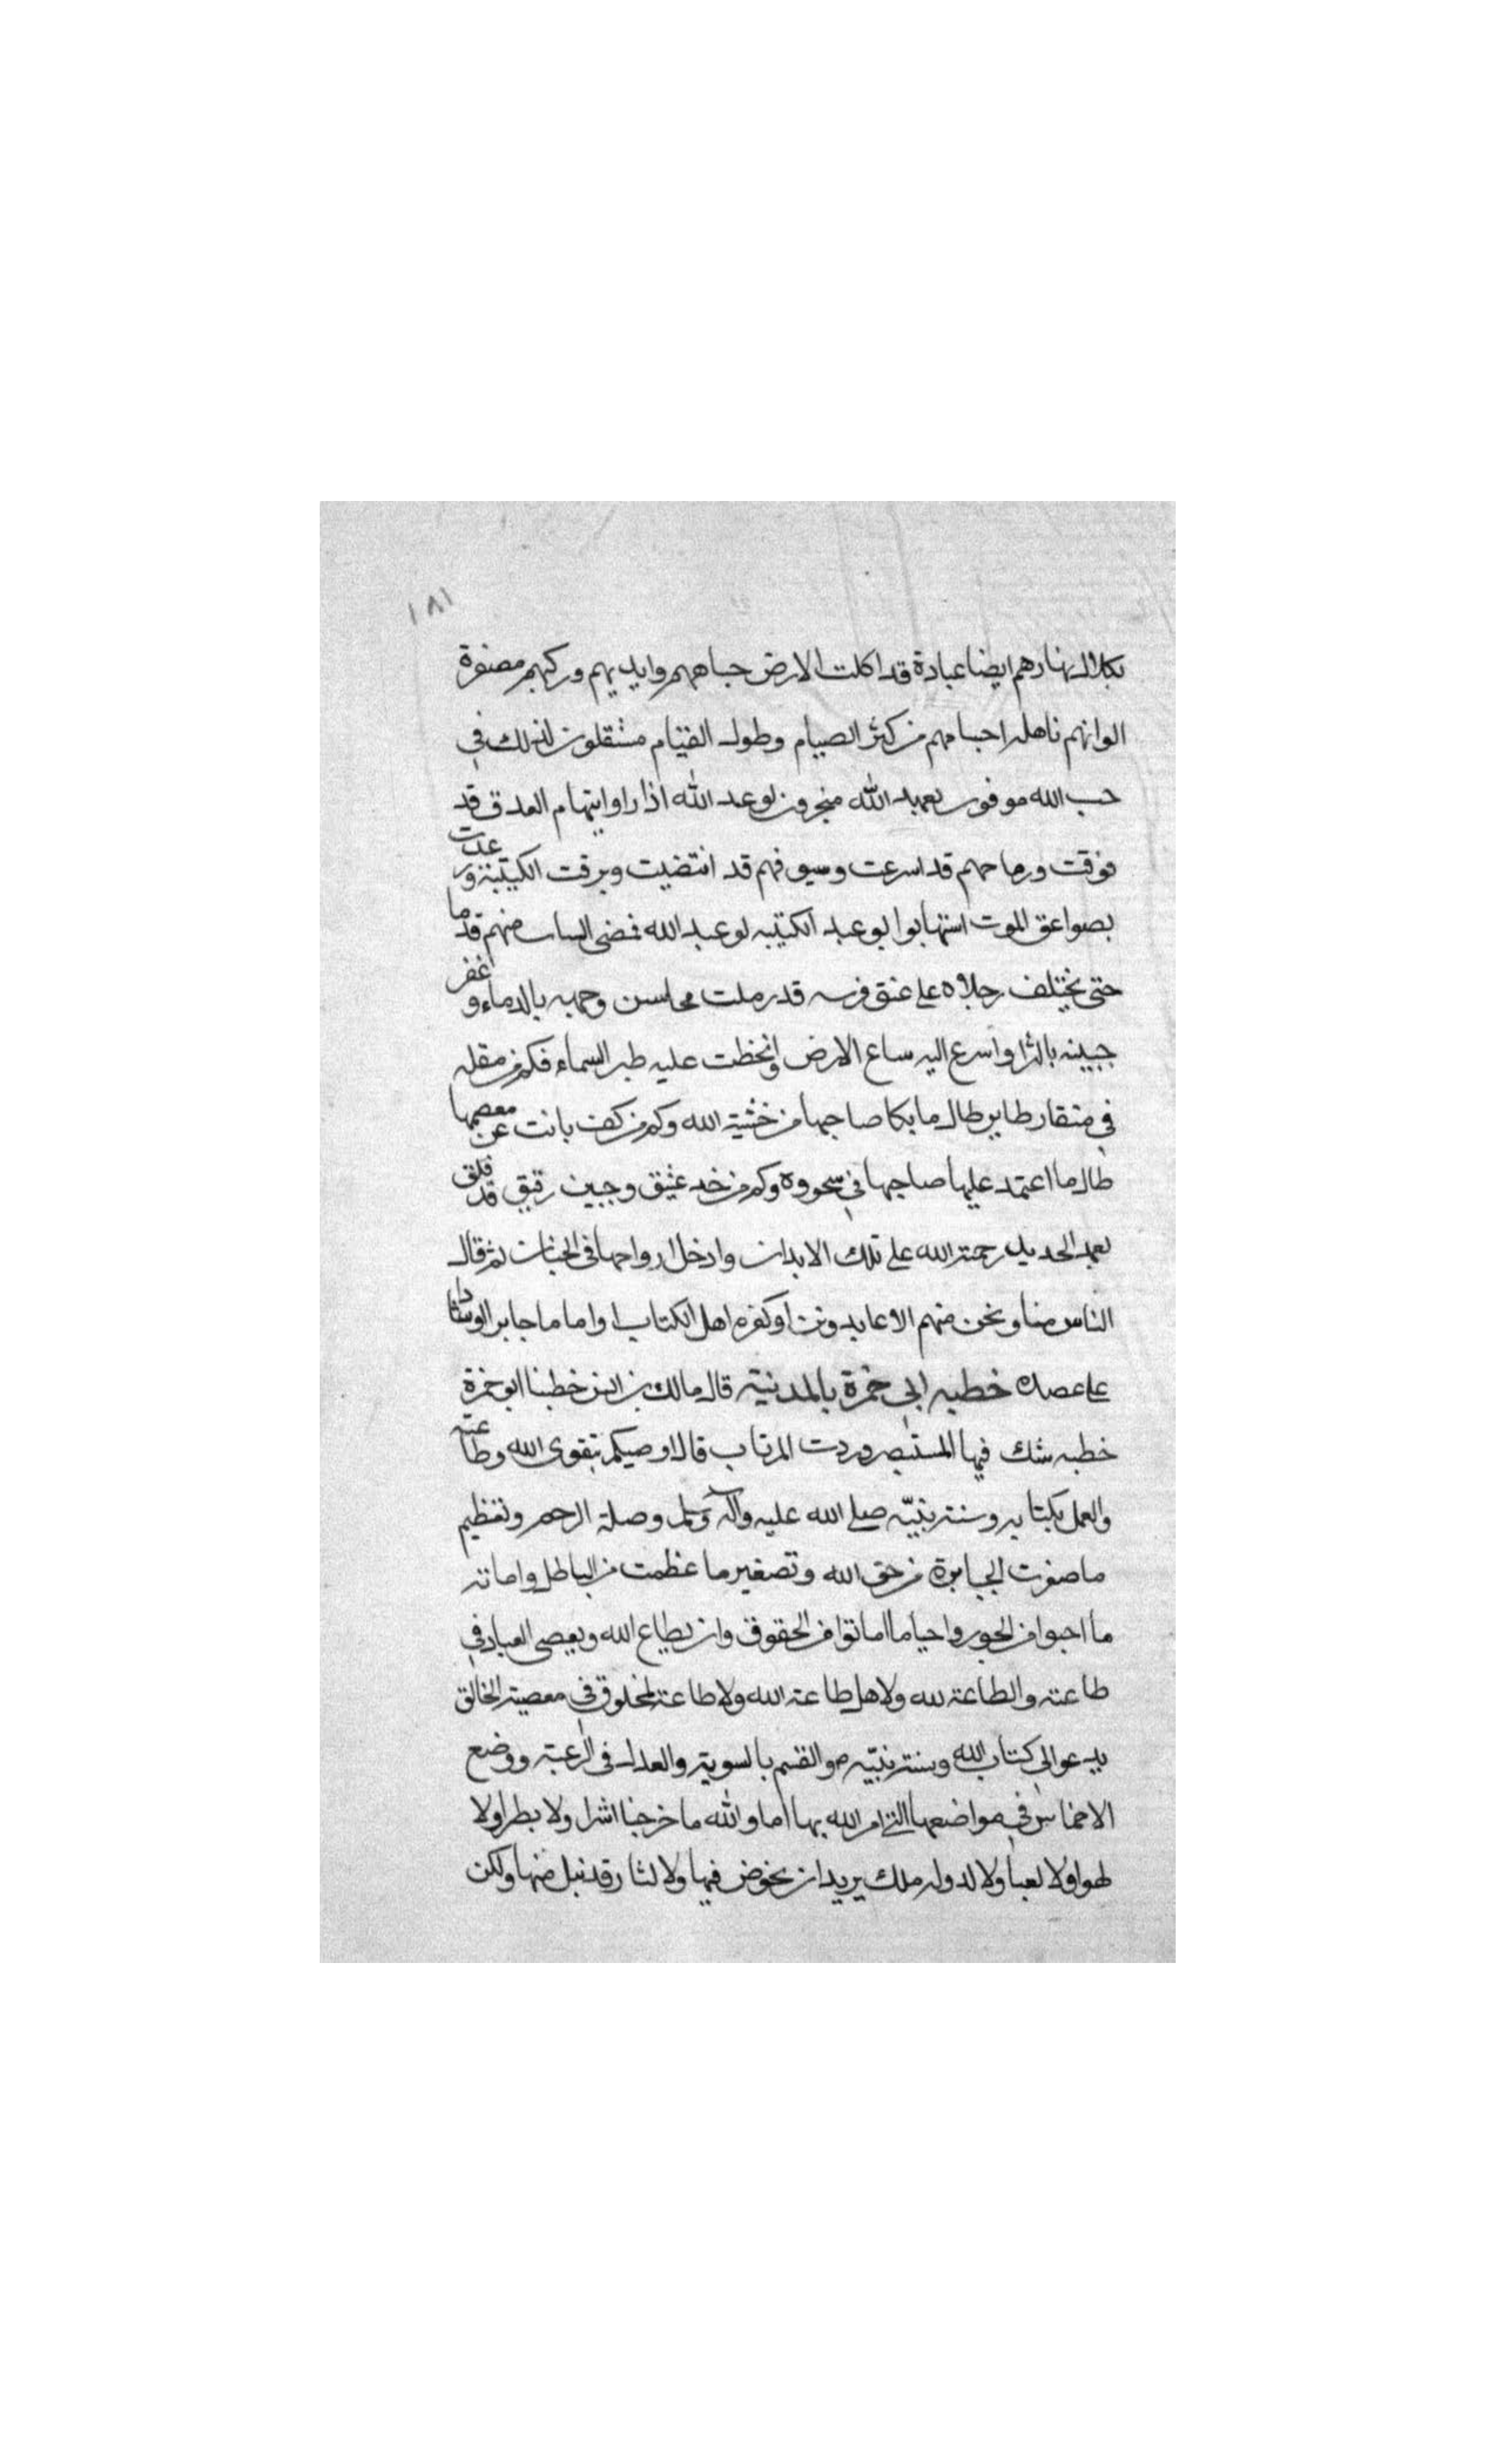 ١٨١
بكلال نهارهم ايضا عبادة قد اكلت الارض جباههم وايديهم وركبهم مصفرة
الوانهم ناهله اجسامهم من كثر الصيام وطول القيام مستقلون لذلك في
جب الله موفون بعهد الله منجزون لوعد الله اذا راوا سهام العدو قد
فوقت ورماحهم قد اسرعت وسيوفهم قد انتضيت وبرقت الكتيبة ورعدت
بصواعق الموت استهابوا بوعيد الكتيبه لوعيد الله فمضى الساب منهم قدما
حتى يختلف رجلاه على عنق فرسه قد رملت محاسن وجهه بالدماء وغفر
جبينه بالثرا واسرع اليه سباع الارض وانحطت عليه طير السماء فكم من مقله
في منقار طاير طال ما بكا صاحبها من خشية الله وكم من كف بانت عن معصمها
طال ما اعتمد عليها صاحبها في سجوده وكم من خد عتيق وجبين رقيق قد فلق
بعمد الحديد رحمة الله على تلك الابدان وادخل ارواحها في الجنان ثم قال
الناس منا ونحن منهم الا عابد وثن او كفره اهل الكتاب او اماما جايرا او شادا
على عضده خطبه ابي حمزة بالمدينة قال مالك بن انس خطبنا ابو حمزة
خطبه شك فيها المستبصر وردت المرتاب قال اوصيكم بتقوى الله وطاعته
والعمل بكتابه وسنة نبيّه صلى الله عليه وآله وسلم وصلة الرحم وتعظيم
ما صغرت الجبابرة من حق الله وتصغير ما عظمت من الباطل واماتة
ما احيوا من الجور واحيا ما اماتوا من الحقوق وان يطاع الله ويعصى العباد في
طاعته والطاعة لله ولاهل طاعة الله ولا طاعة لمخلوق في معصية الخالق
يدعوا الى كتاب الله وسنة نبيّه ص والقسم بالسوية والعدل في الرعية ووضع
الاخماس في مواضعها التي امر الله بها اما والله ما خرجنا اشرا ولا بطرا ولا
لهوا ولا لعبا ولا لدولة ملك يريد ان يخوض فيها ولا لثار قد نيل منها ولكن